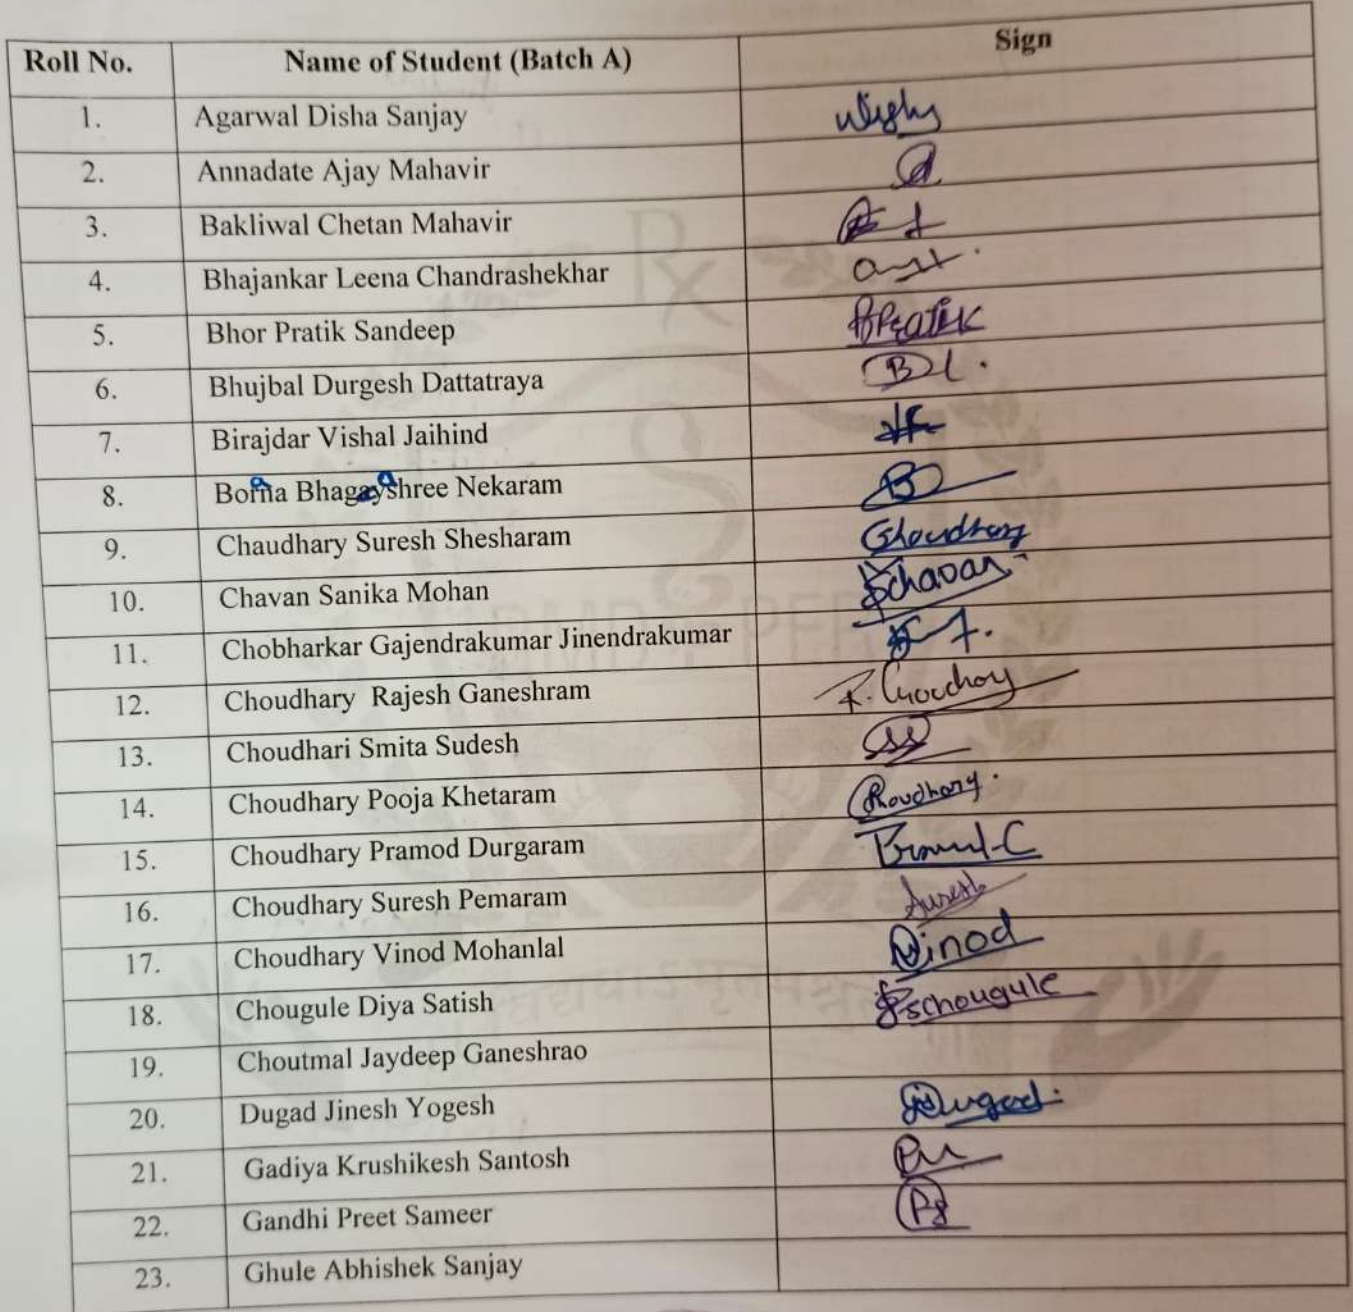 Roll No. Name of Student (Batch A) Sign
1. Agarwal Disha Sanjay
2. Annadate Ajay Mahavir
3. Bakliwal Chetan Mahavir
4. Bhajankar Leena Chandrashekhar
5. Bhor Pratik Sandeep BPratik
6. Bhujbal Durgesh Dattatraya
7. Birajdar Vishal Jaihind
8. Borna Bhagayshree Nekaram
9. Chaudhary Suresh Shesharam
10. Chavan Sanika Mohan Schavan
11. Chobharkar Gajendrakumar Jinendrakumar
12. Choudhary Rajesh Ganeshram
13. Choudhari Smita Sudesh
14. Choudhary Pooja Khetaram Choudhary.
15. Choudhary Pramod Durgaram
16. Choudhary Suresh Pemaram Suresh
17. Choudhary Vinod Mohanlal Vinod
18. Chougule Diya Satish
19. Choutmal Jaydeep Ganeshrao
20. Dugad Jinesh Yogesh
21. Gadiya Krushikesh Santosh
22. Gandhi Preet Sameer
23. Ghule Abhishek Sanjay